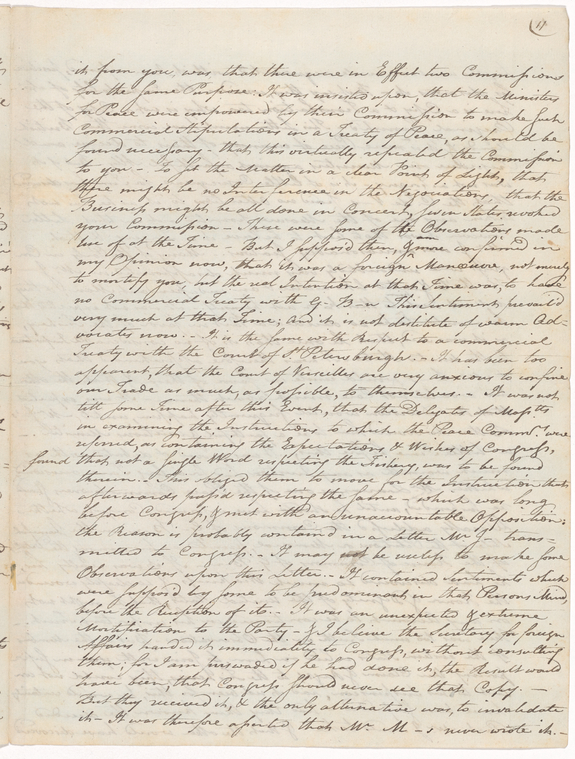 4
it from you, was that there were in Effect two Commissions
for the same Purpose: It was insisted upon, that the Ministers
for Peace were impowered by their Commission to make such
Commercial Stipulations in a Treaty of Peace, as should be
found necessary - that this virtually repealed the Commission
to you - To set the Matter in a clear Point of Light, that
there might be no Interference in the Negociations, that the
Business might be all done in Concert, seven States revoked
your Commission - These were some of the Observations made
use of at the Time - But I supposed then, & am more confirmed in
my Opinion now, that it was a foreign Manœuvre, not merely
to mortify you, but the real Intention at that Time was, to have
no Commercial Treaty with G. B-n This Sentiment prevail'd
very much at that Time; and it is not destitute of warm Ad-
vocates now. - It is the same with Respect to a commercial
Treaty with the Court of St Petersburgh. - It has been too
apparent, that the Court of Versailles are very anxious to confine
our Trade as much, as possible, to themselves. - It was not
till some Time after this Event, that the Delegates of Massts
in examining the Instructions to which the Peace Commrs were
referred, as containing the Expectations & Wishes of Congress,
found that not a single Word respecting the Fishery, was to be found
therein. This obliged them to move for the Instruction that
afterwards pass'd respecting the same - which was long
before Congress, & met with an unaccountable Opposition;
the Reason is probably contained in a Letter Mr trans-
mitted to Congress. - It may not be useless to make some
Observations upon this Letter. - It contained Sentiments which
were supposed by some to be predominant in that Persons Mind,
before the Reception of it. - It was an unexpected & extreme
Mortification to the Party - & I believe the Secretary for foreign
Affairs handed it immediately to Congress, without consulting
them; for I am perswaded if he had done it, the Result would
have been, that Congress should never see that Copy. -
But they received it, & the only alternative was, to invalidate
it - It was therefore asserted that Mr. M-s never wrote it. -